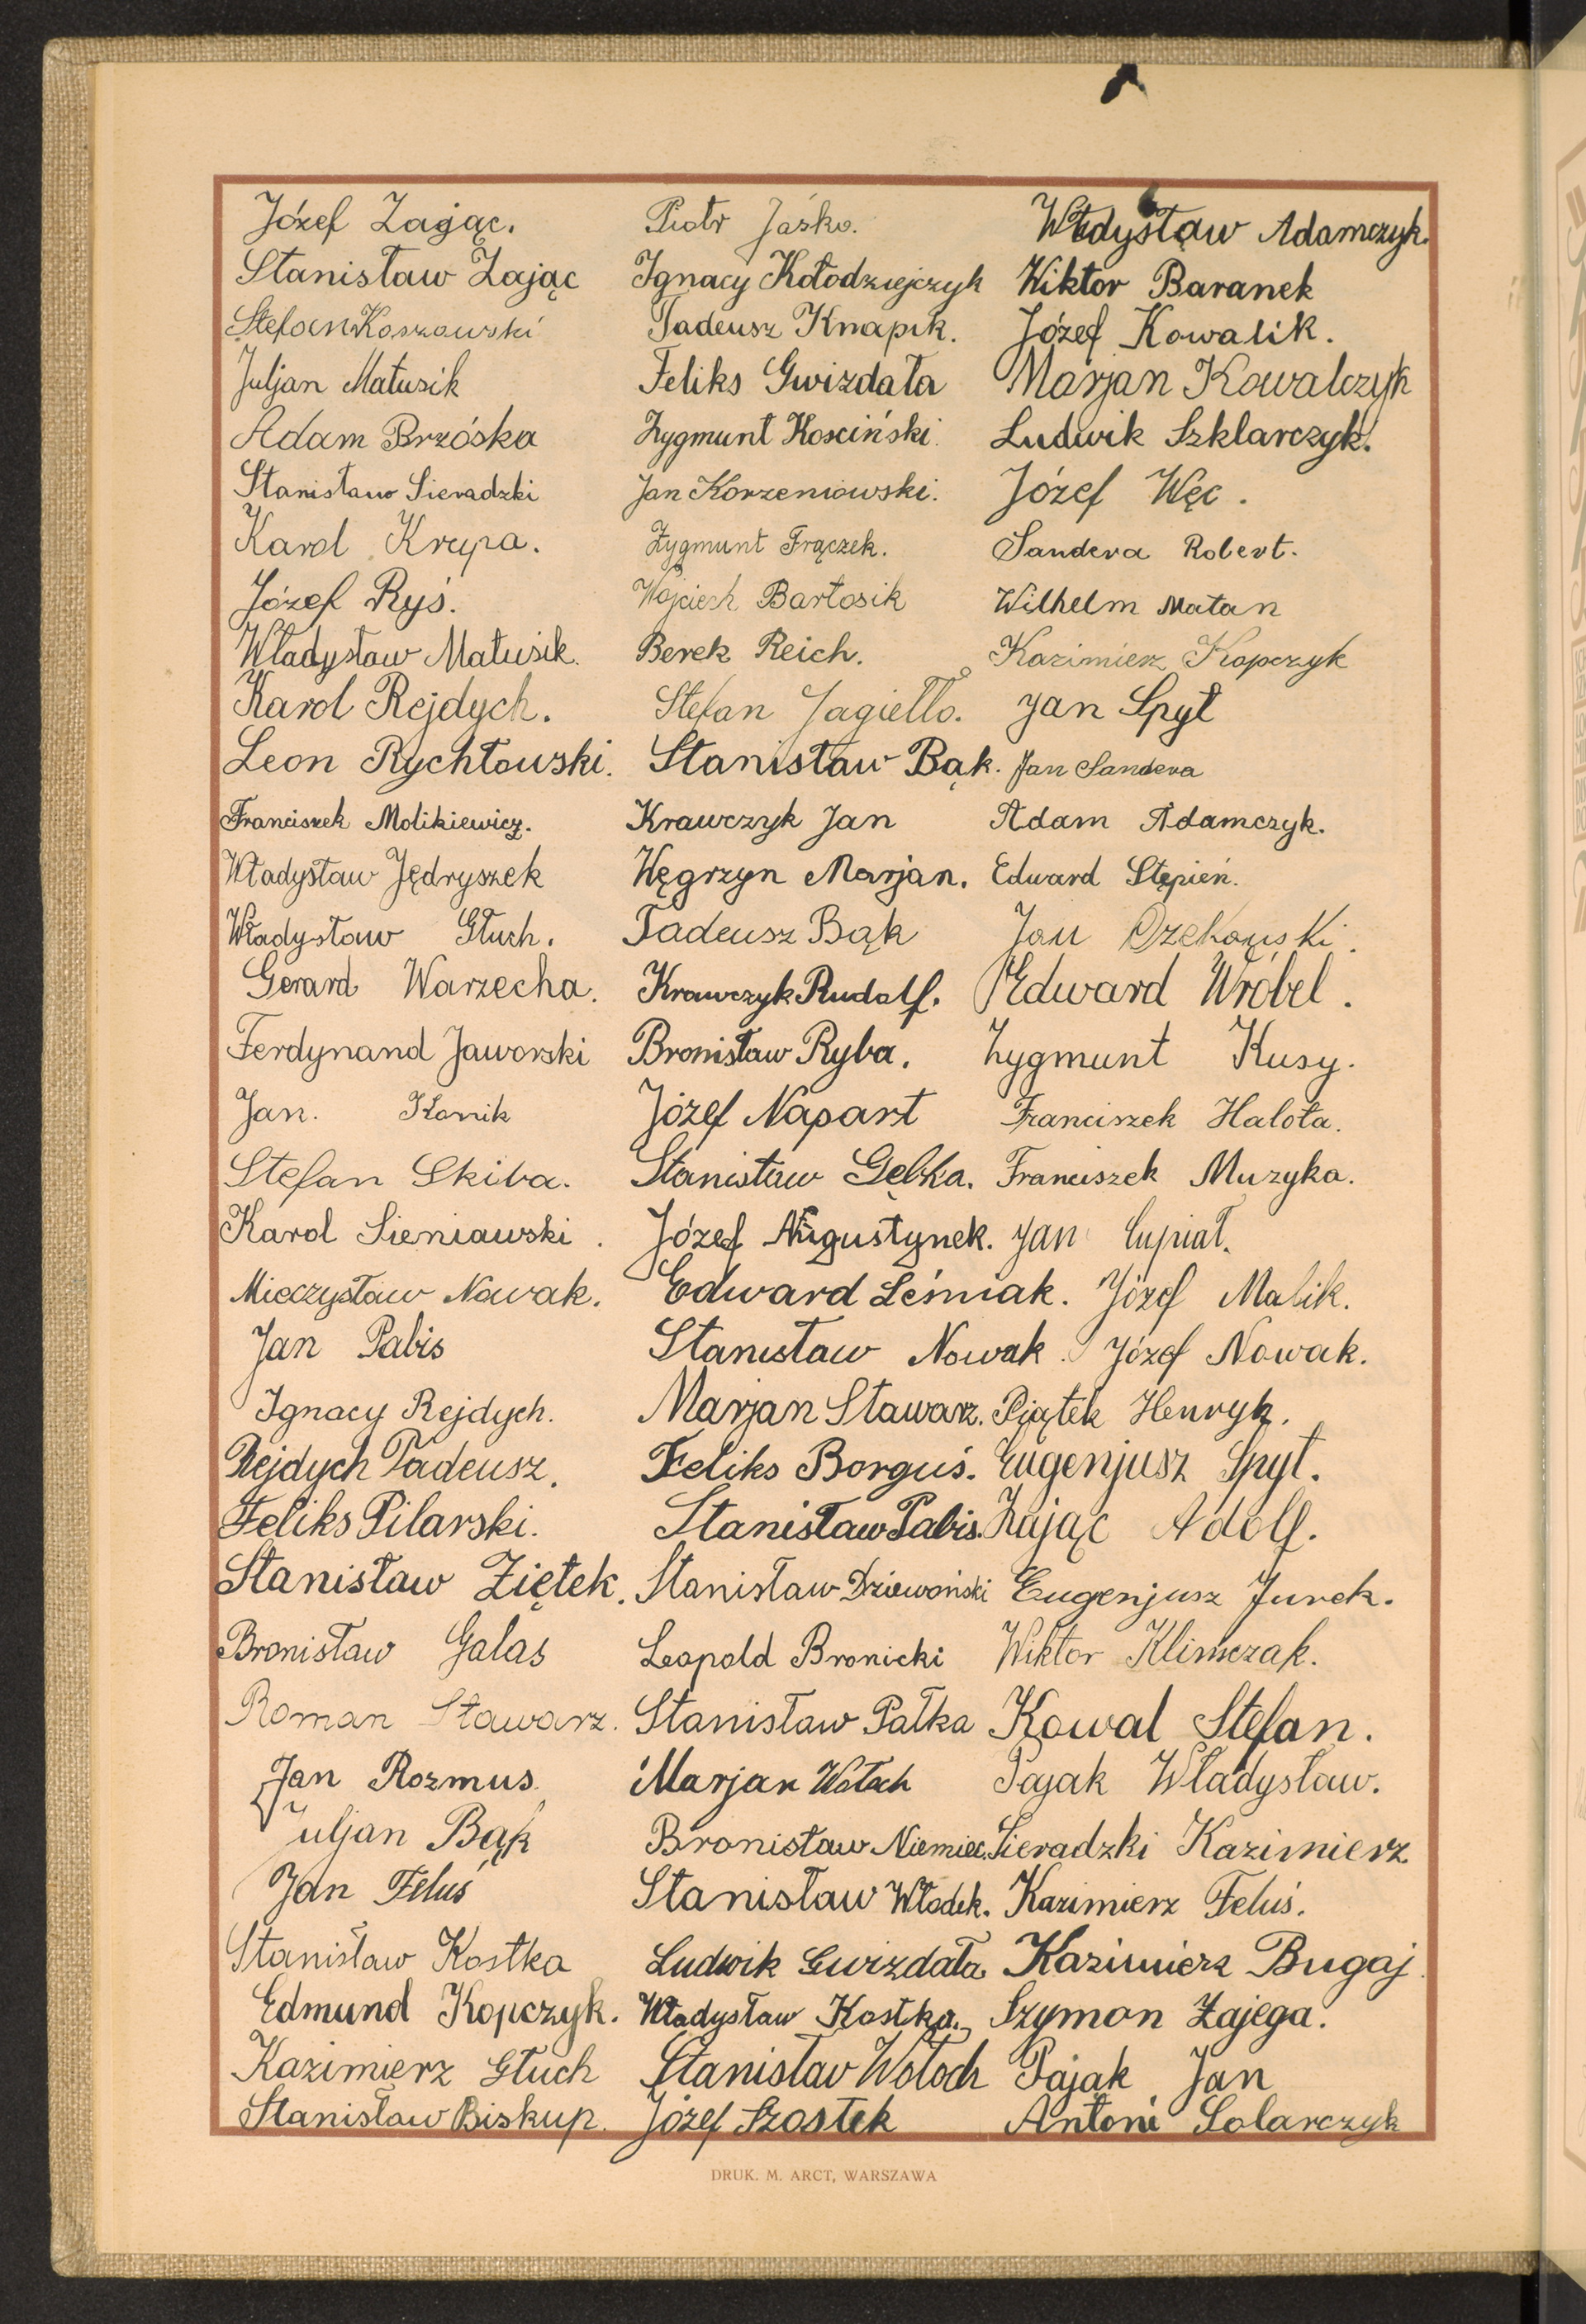 Józef Zając.
Stanisław Zając
Stefan Koszowski
Juljan Matusik
Adam Brzóska
Stanisław Sieradzki
Karol Krupa.
Józef Ryś.
Władysław Matusik.
Karol Rejdych.
Leon Rychłowski.
Franciszek Molikiewicz.
Władysław Jędryszek
Władysław Głuch.
Gerard Warzecha.
Ferdynand Jaworski
Jan. Konik
Stefan Skiba.
Karol Sieniawski.
Mieczysław Nowak.
Jan Pabis
Ignacy Rejdych.
Rejdych Tadeusz.
Feliks Pilarski.
Stanisław Ziętek.
Bronisław Galas
Roman Stawarz.
Jan Rozmus.
Juljan Bąk
Jan Feluś
Stanisław Kostka
Edmund Kopczyk.
Kazimierz Głuch
Stanisław Biskup.
Piotr Jaśko.
Ignacy Kołodziejczyk
Tadeusz Knapik.
Feliks Gwizdała
Zygmunt Kosciński.
Jan Korzeniowski.
Zygmunt Frączek.
Wojciech Bartosik
Berek Reich.
Stefan Jagiełło.
Stanisław Bąk.
Krawczyk Jan
Węgrzyn Marjan.
Tadeusz Bąk
Krawczyk Rudolf.
Bronisław Ryba.
Józef Napart
Stanisław Gębka.
Józef Augustynek.
Edward Leśniak.
Stanisław Nowak.
Marjan Stawarz.
Feliks Borguś.
Stanisław Pabis.
Stanisław Dziewoński
Leopold Bronicki
Stanisław Pałka
Marjan Wołoch
Bronisław Niemiec.
Stanisław Włodek.
Ludwik Gwizdała
Władysław Kostka.
Stanisław Wołoch
Józef Szostek
Władysław Adamczyk.
Wiktor Baranek
Józef Kowalik.
Marjan Kowalczyk
Ludwik Szklarczyk.
Józef Węc.
Sandera Robert.
Wilhelm Matan
Kazimierz Kopczyk
Jan Spyt
Jan Sandera
Adam Adamczyk.
Edward Stępień.
Jan
Edward Wróbel.
Zygmunt Kusy.
Franciszek Halota.
Franciszek Muzyka.
Jan Cupiał.
Józef Malik.
Józef Nowak.
Piątek Henryk.
Eugenjusz Spyt.
Zając Adolf.
Eugenjusz Jurek.
Wiktor Klimczak.
Kowal Stefan.
Pająk Władysław.
Sieradzki Kazimierz
Kazimierz Feluś.
Kazimierz Bugaj.
Szymon Zajega.
Pająk Jan
Antoni Solarczyk
DRUK. M. ARCT, WARSZAWA